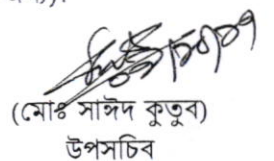 (মোঃ সাঈদ কুতুব)
উপসচিব